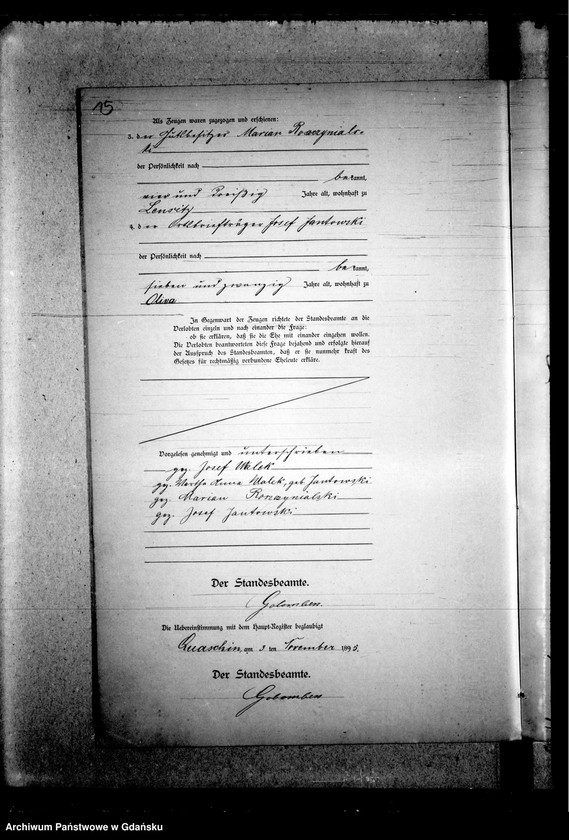 15
Als Zeugen waren zugezogen und erschienen:
3. der Gutsbesitzer Marian Roszynials-
ki
der Persönlichkeit nach
bekannt,
vier und dreißig Jahre alt, wohnhaft zu
Lensitz
4. der Ortsbriefträger Josef Jantowski
der Persönlichkeit nach
bekannt,
sieben und zwanzig Jahre alt, wohnhaft zu
Oliva
In Gegenwart der Zeugen richtete der Standesbeamte an die
Verlobten einzeln und nach einander die Frage:
ob sie erklären, daß sie die Ehe mit einander eingehen wollen.
Die Verlobten beantworteten diese Frage bejahend und erfolgte hierauf
der Ausspruch des Standesbeamten, daß er sie nunmehr kraft des
Gesetzes für rechtmäßig verbundene Eheleute erkläre.
Vorgelesen genehmigt und unterschrieben
gez. Josef Walek
gez. Martha Anna Walek, geb Jantowski
gez. Marian Roszynialski
gez. Josef Jantowski
Der Standesbeamte.
Die Uebereinstimmung mit dem Haupt-Register beglaubigt
Quaschin, am 3 ten November 1895.
Der Standesbeamte.
Archiwum Państwowe w Gdańsku